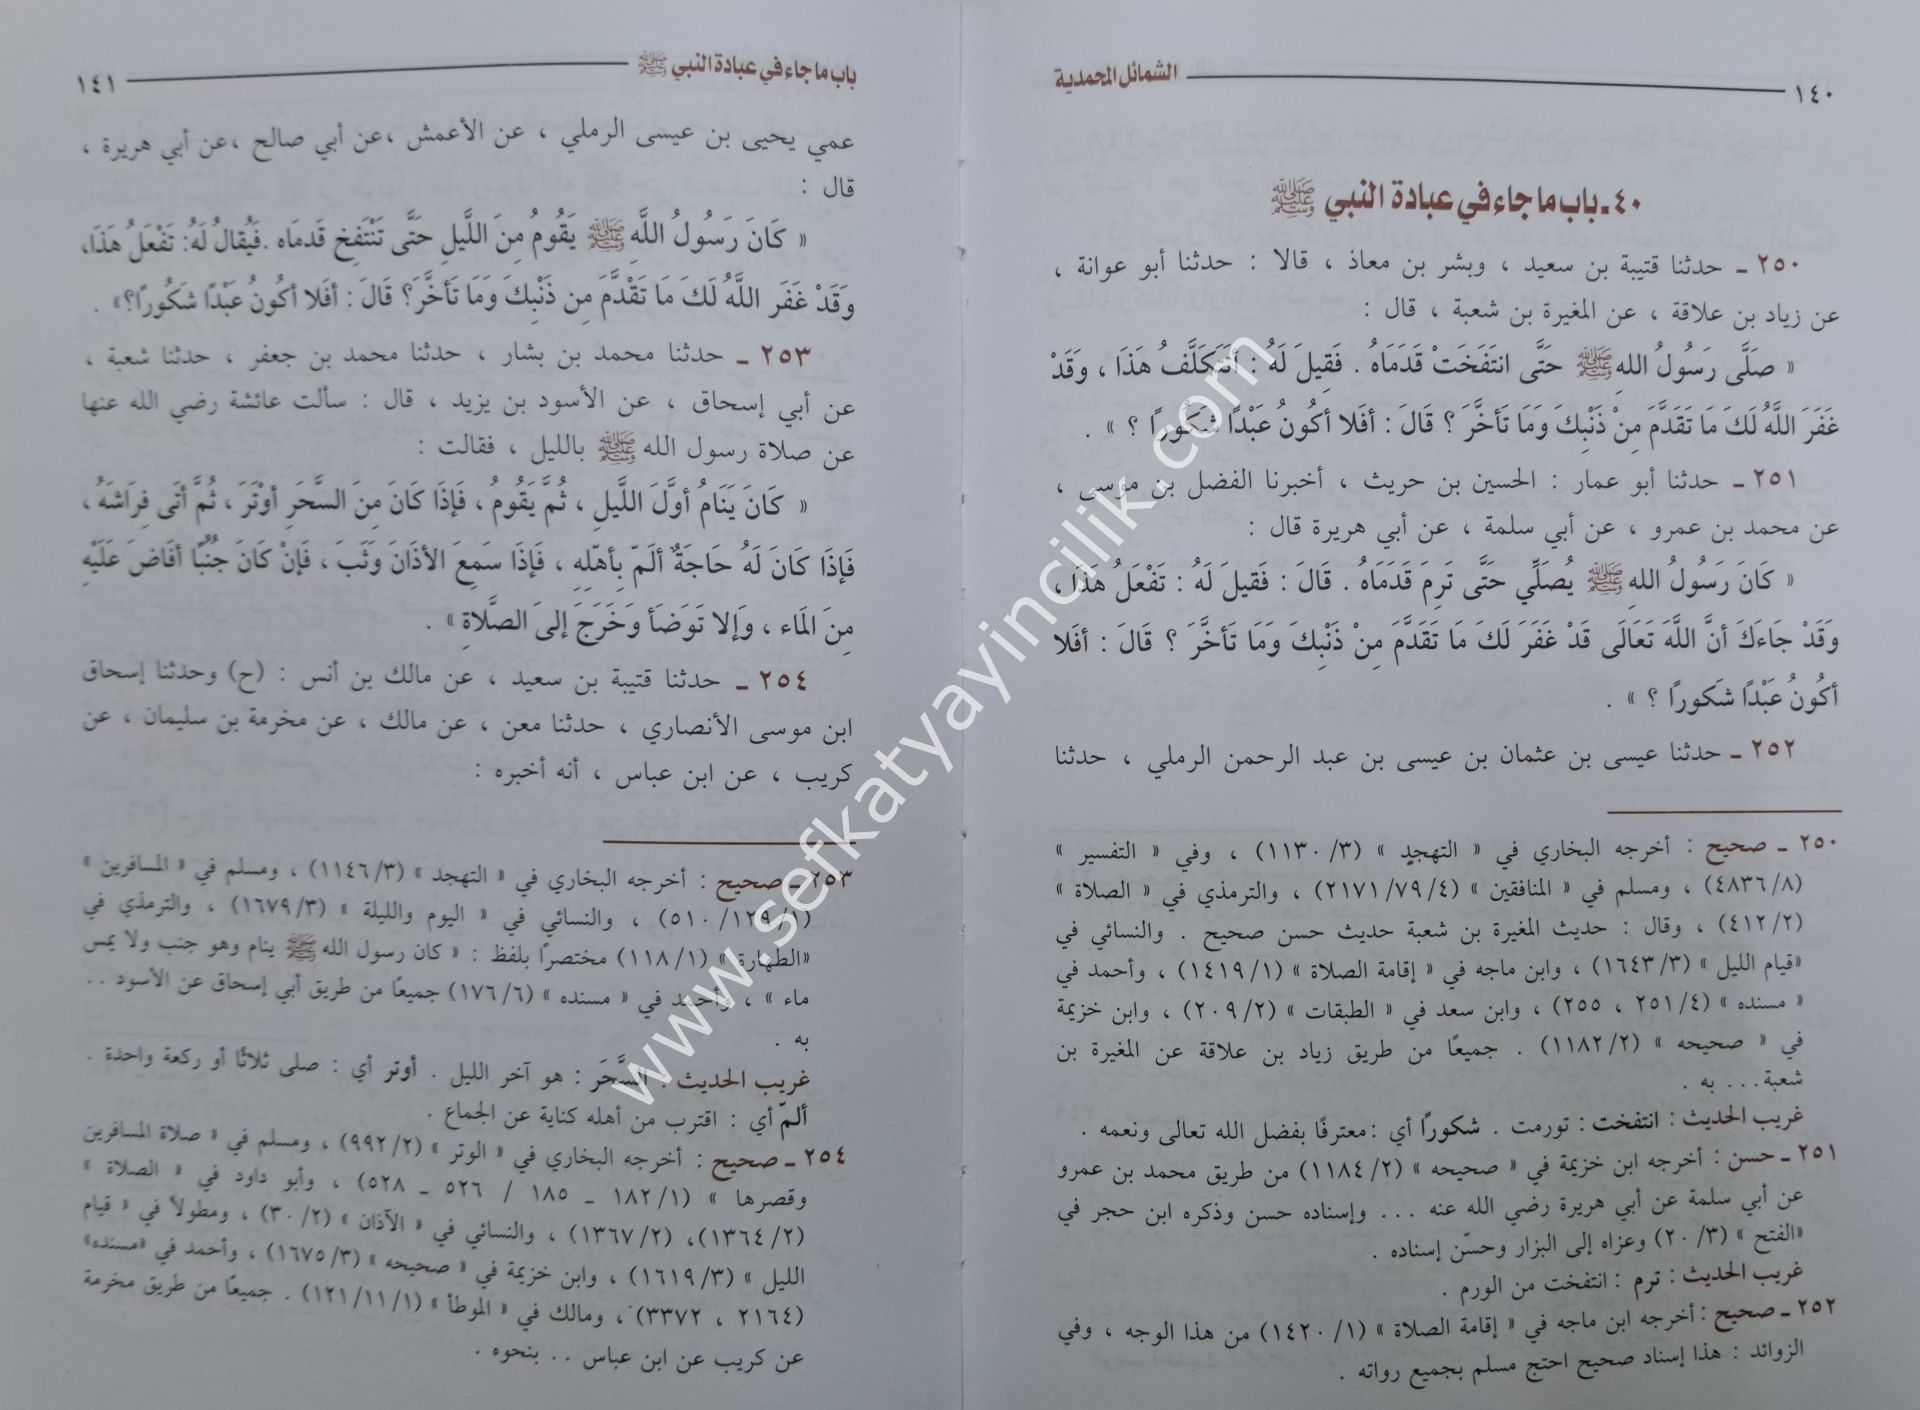 ١٤٠ الشمائل المحمدية
٤٠ـ باب ما جاء في عبادة النبي ﷺ
٢٥٠ ـ حدثنا قتيبة بن سعيد ، وبشر بن معاذ ، قالا : حدثنا أبو عوانة ،
عن زياد بن علاقة ، عن المغيرة بن شعبة ، قال :
« صَلَّى رَسُولُ اللهِ ﷺ حَتَّى انتَفَخَتْ قَدَمَاهُ . فَقِيلَ لَهُ : أتَتَكَلَّفُ هَذَا ، وَقَدْ
غَفَرَ اللَّهُ لَكَ مَا تَقَدَّمَ مِنْ ذَنْبِكَ وَمَا تَأخَّرَ ؟ قَالَ : أفَلا أكُونُ عَبْدًا شَكُورًا ؟ » .
٢٥١ ـ حدثنا أبو عمار : الحسين بن حريث ، أخبرنا الفضل بن موسى ،
عن محمد بن عمرو ، عن أبي سلمة ، عن أبي هريرة قال :
« كَانَ رَسُولُ اللهِ ﷺ يُصَلِّي حَتَّى تَرِمَ قَدَمَاهُ . قَالَ : فَقِيلَ لَهُ : تَفْعَلُ هَذَا ،
وَقَدْ جَاءَكَ أنَّ اللَّهَ تَعَالَى قَدْ غَفَرَ لَكَ مَا تَقَدَّمَ مِنْ ذَنْبِكَ وَمَا تَأخَّرَ ؟ قَالَ : أفَلا
أكُونُ عَبْدًا شَكورًا ؟ » .
٢٥٢ ـ حدثنا عيسى بن عثمان بن عيسى بن عبد الرحمن الرملي ، حدثنا
٢٥٠ ـ صحيح : أخرجه البخاري في « التهجد » (٣/ ١١٣٠) ، وفي « التفسير »
(٨/ ٤٨٣٦) ، ومسلم في « المنافقين » (٤/ ٧٩/ ٢١٧١) ، والترمذي في « الصلاة »
(٢/ ٤١٢) ، وقال : حديث المغيرة بن شعبة حديث حسن صحيح . والنسائي في
«قيام الليل » (٣/ ١٦٤٣) ، وابن ماجه في « إقامة الصلاة » (١/ ١٤١٩) ، وأحمد في
« مسنده » (٤/ ٢٥١ ، ٢٥٥) ، وابن سعد في « الطبقات » (٢/ ٢٠٩) ، وابن خزيمة
في « صحيحه » (٢/ ١١٨٢) . جميعًا من طريق زياد بن علاقة عن المغيرة بن
شعبة... به .
غريب الحديث : انتفخت : تورمت . شكورًا أي :معترفًا بفضل الله تعالى ونعمه .
٢٥١ ـ حسن : أخرجه ابن خزيمة في « صحيحه » (٢/ ١١٨٤) من طريق محمد بن عمرو
عن أبي سلمة عن أبي هريرة رضي الله عنه ... وإسناده حسن وذكره ابن حجر في
«الفتح » (٣/ ٢٠) وعزاه إلى البزار وحسّن إسناده .
غريب الحديث : ترم : انتفخت من الورم .
٢٥٢ ـ صحيح : أخرجه ابن ماجه في « إقامة الصلاة » (١/ ١٤٢٠) من هذا الوجه ، وفي
الزوائد : هذا إسناد صحيح احتج مسلم بجميع رواته .
باب ما جاء في عبادة النبي ﷺ ١٤١
عمي يحيى بن عيسى الرملي ، عن الأعمش ،عن أبي صالح ،عن أبي هريرة ،
قال :
« كَانَ رَسُولُ اللَّهِ ﷺ يَقُومُ مِنَ اللَّيلِ حَتَّى تَنْتَفِخ قَدمَاه .فَيُقالُ لَهُ: تَفْعَلُ هَذَا،
وَقَدْ غَفَرَ اللَّهُ لَكَ مَا تَقْدَّمَ مِن ذَنْبِكَ وَمَا تَأخَّرَ؟ قَالَ : أفَلا أكُونُ عَبْدًا شَكُورًا؟» .
٢٥٣ ـ حدثنا محمد بن بشار ، حدثنا محمد بن جعفر ، حدثنا شعبة ،
عن أبي إسحاق ، عن الأسود بن يزيد ، قال : سألت عائشة رضي الله عنها
عن صلاة رسول الله ﷺ بالليل ، فقالت :
« كَانَ يَنَامُ أوَّلَ اللَّيلِ ، ثُمَّ يَقُومُ ، فَإذَا كَانَ مِنَ السَّحَرِ أوْتَرَ ، ثُمَّ أتَى فِرَاشَهُ ،
فَإذَا كَانَ لَهُ حَاجَةٌ ألَمّ بِأهْلِهِ ، فَإذَا سَمِعَ الأذَانَ وَثَبَ ، فَإنْ كَانَ جُنُبًا أفَاضَ عَلَيْهِ
مِنَ الَماء ، وَإلا تَوَضَأ وَخَرَجَ إلىَ الصَّلَاةِ » .
٢٥٤ ـ حدثنا قتيبة بن سعيد ، عن مالك بن أنس : (ح) وحدثنا إسحاق
ابن موسى الأنصاري ، حدثنا معن ، عن مالك ، عن مخرمة بن سليمان ، عن
كريب ، عن ابن عباس ، أنه أخبره :
٢٥٣ ـ صحيح : أخرجه البخاري في « التهجد » (٣/ ١١٤٦) ، ومسلم في « المسافرين »
(١/ ١٢٩/ ٥١٠) ، والنسائي في « اليوم والليلة » (٣/ ١٦٧٩) ، والترمذي في
«الطهارة » (١/ ١١٨) مختصرًا بلفظ : « كان رسول الله ﷺ ينام وهو جنب ولا يمس
ماء » ، وأحمد في « مسنده » (٦/ ١٧٦) جميعًا من طريق أبي إسحاق عن الأسود ..
به .
غريب الحديث : السَّحَر : هو آخر الليل . أوتر أي : صلى ثلاثًا أو ركعة واحدة .
ألمّ أي : اقترب من أهله كناية عن الجماع .
٢٥٤ ـ صحيح : أخرجه البخاري في « الوتر » (٢/ ٩٩٢) ، ومسلم في « صلاة المسافرين
وقصرها » (١/ ١٨٢ ـ ١٨٥ / ٥٢٦ ـ ٥٢٨) ، وأبو داود في « الصلاة »
(٢/ ١٣٦٤)، (٢/ ١٣٦٧) ، والنسائي في « الآذان » (٢/ ٣٠) ، ومطولاً في « قيام
الليل » (٣/ ١٦١٩) ، وابن خزيمة في « صحيحه » (٣/ ١٦٧٥) ، وأحمد في «مسنده»
(٢١٦٤ ، ٣٣٧٢) ، ومالك في « الموطأ » (١/ ١١/ ١٢١) . جميعًا من طريق مخرمة
عن كريب عن ابن عباس .. بنحوه .
www.sefkatyayincilik.com